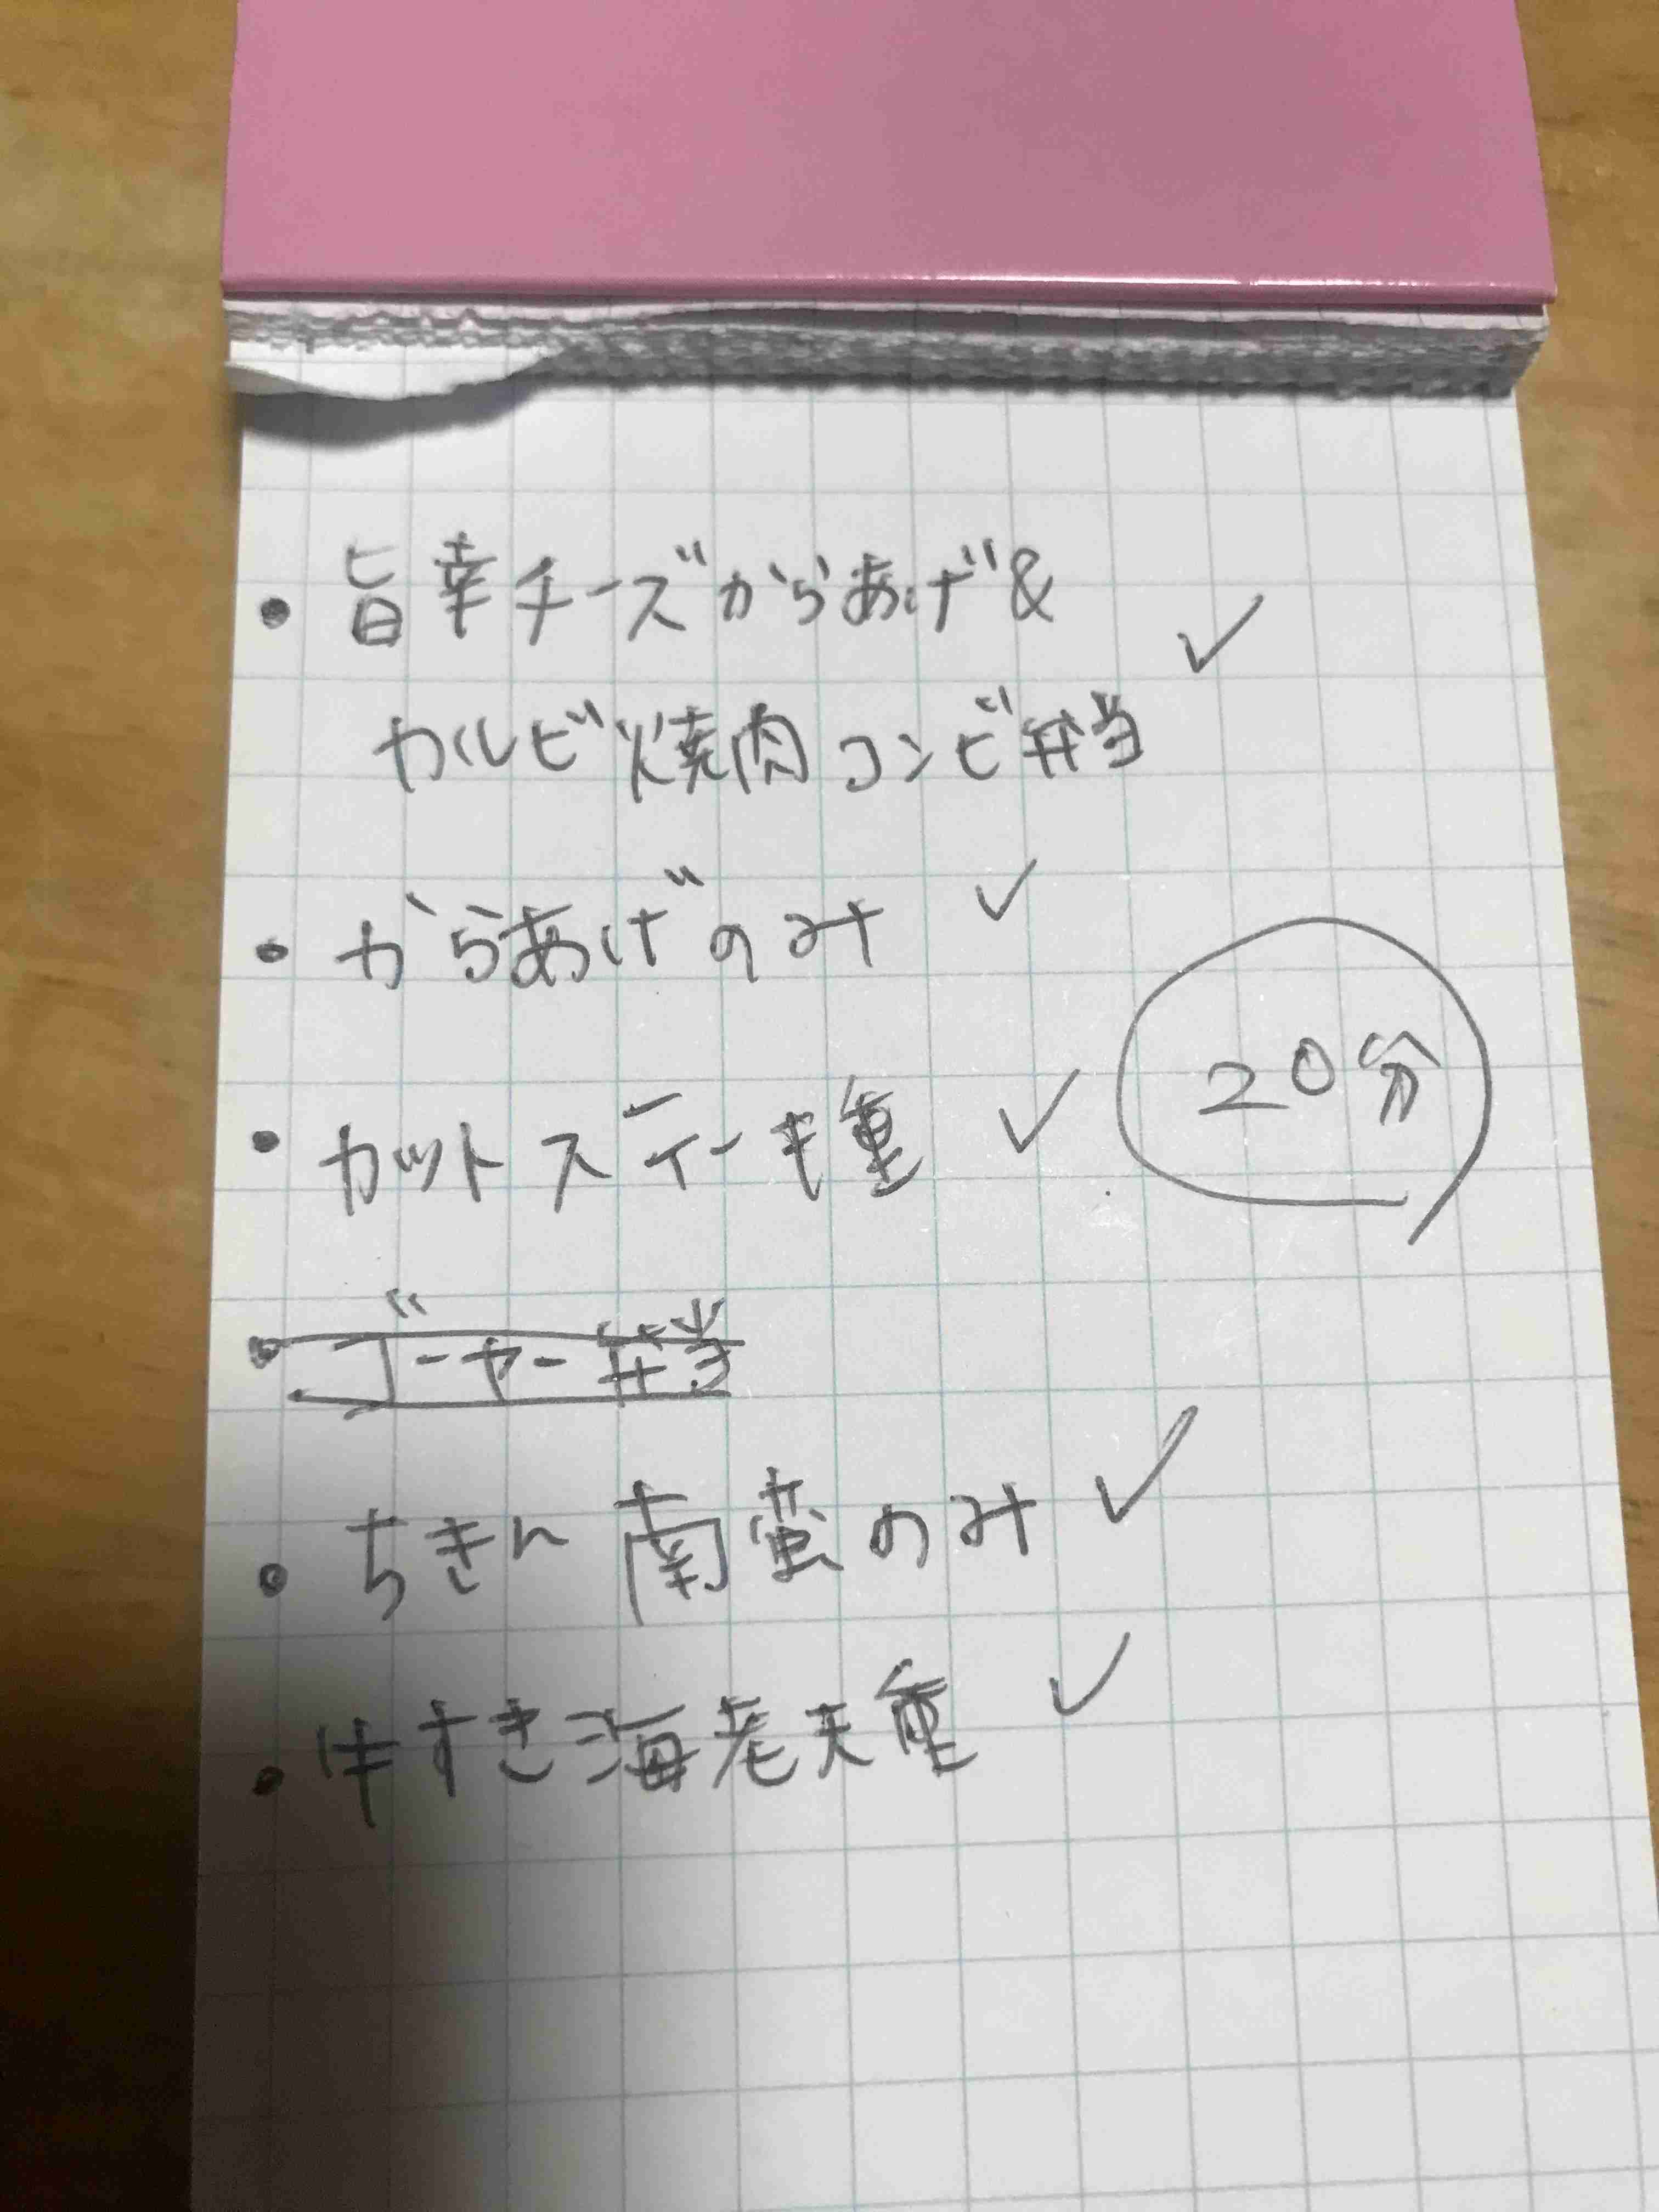 ・旨幸チーズからあげ&
カルビ焼肉コンビ弁当 ✓
・からあげのみ ✓
・カットステーキ重 ✓
20分
・ゴーヤー弁当
・ちきん南蛮のみ ✓
・牛すき海老天重 ✓